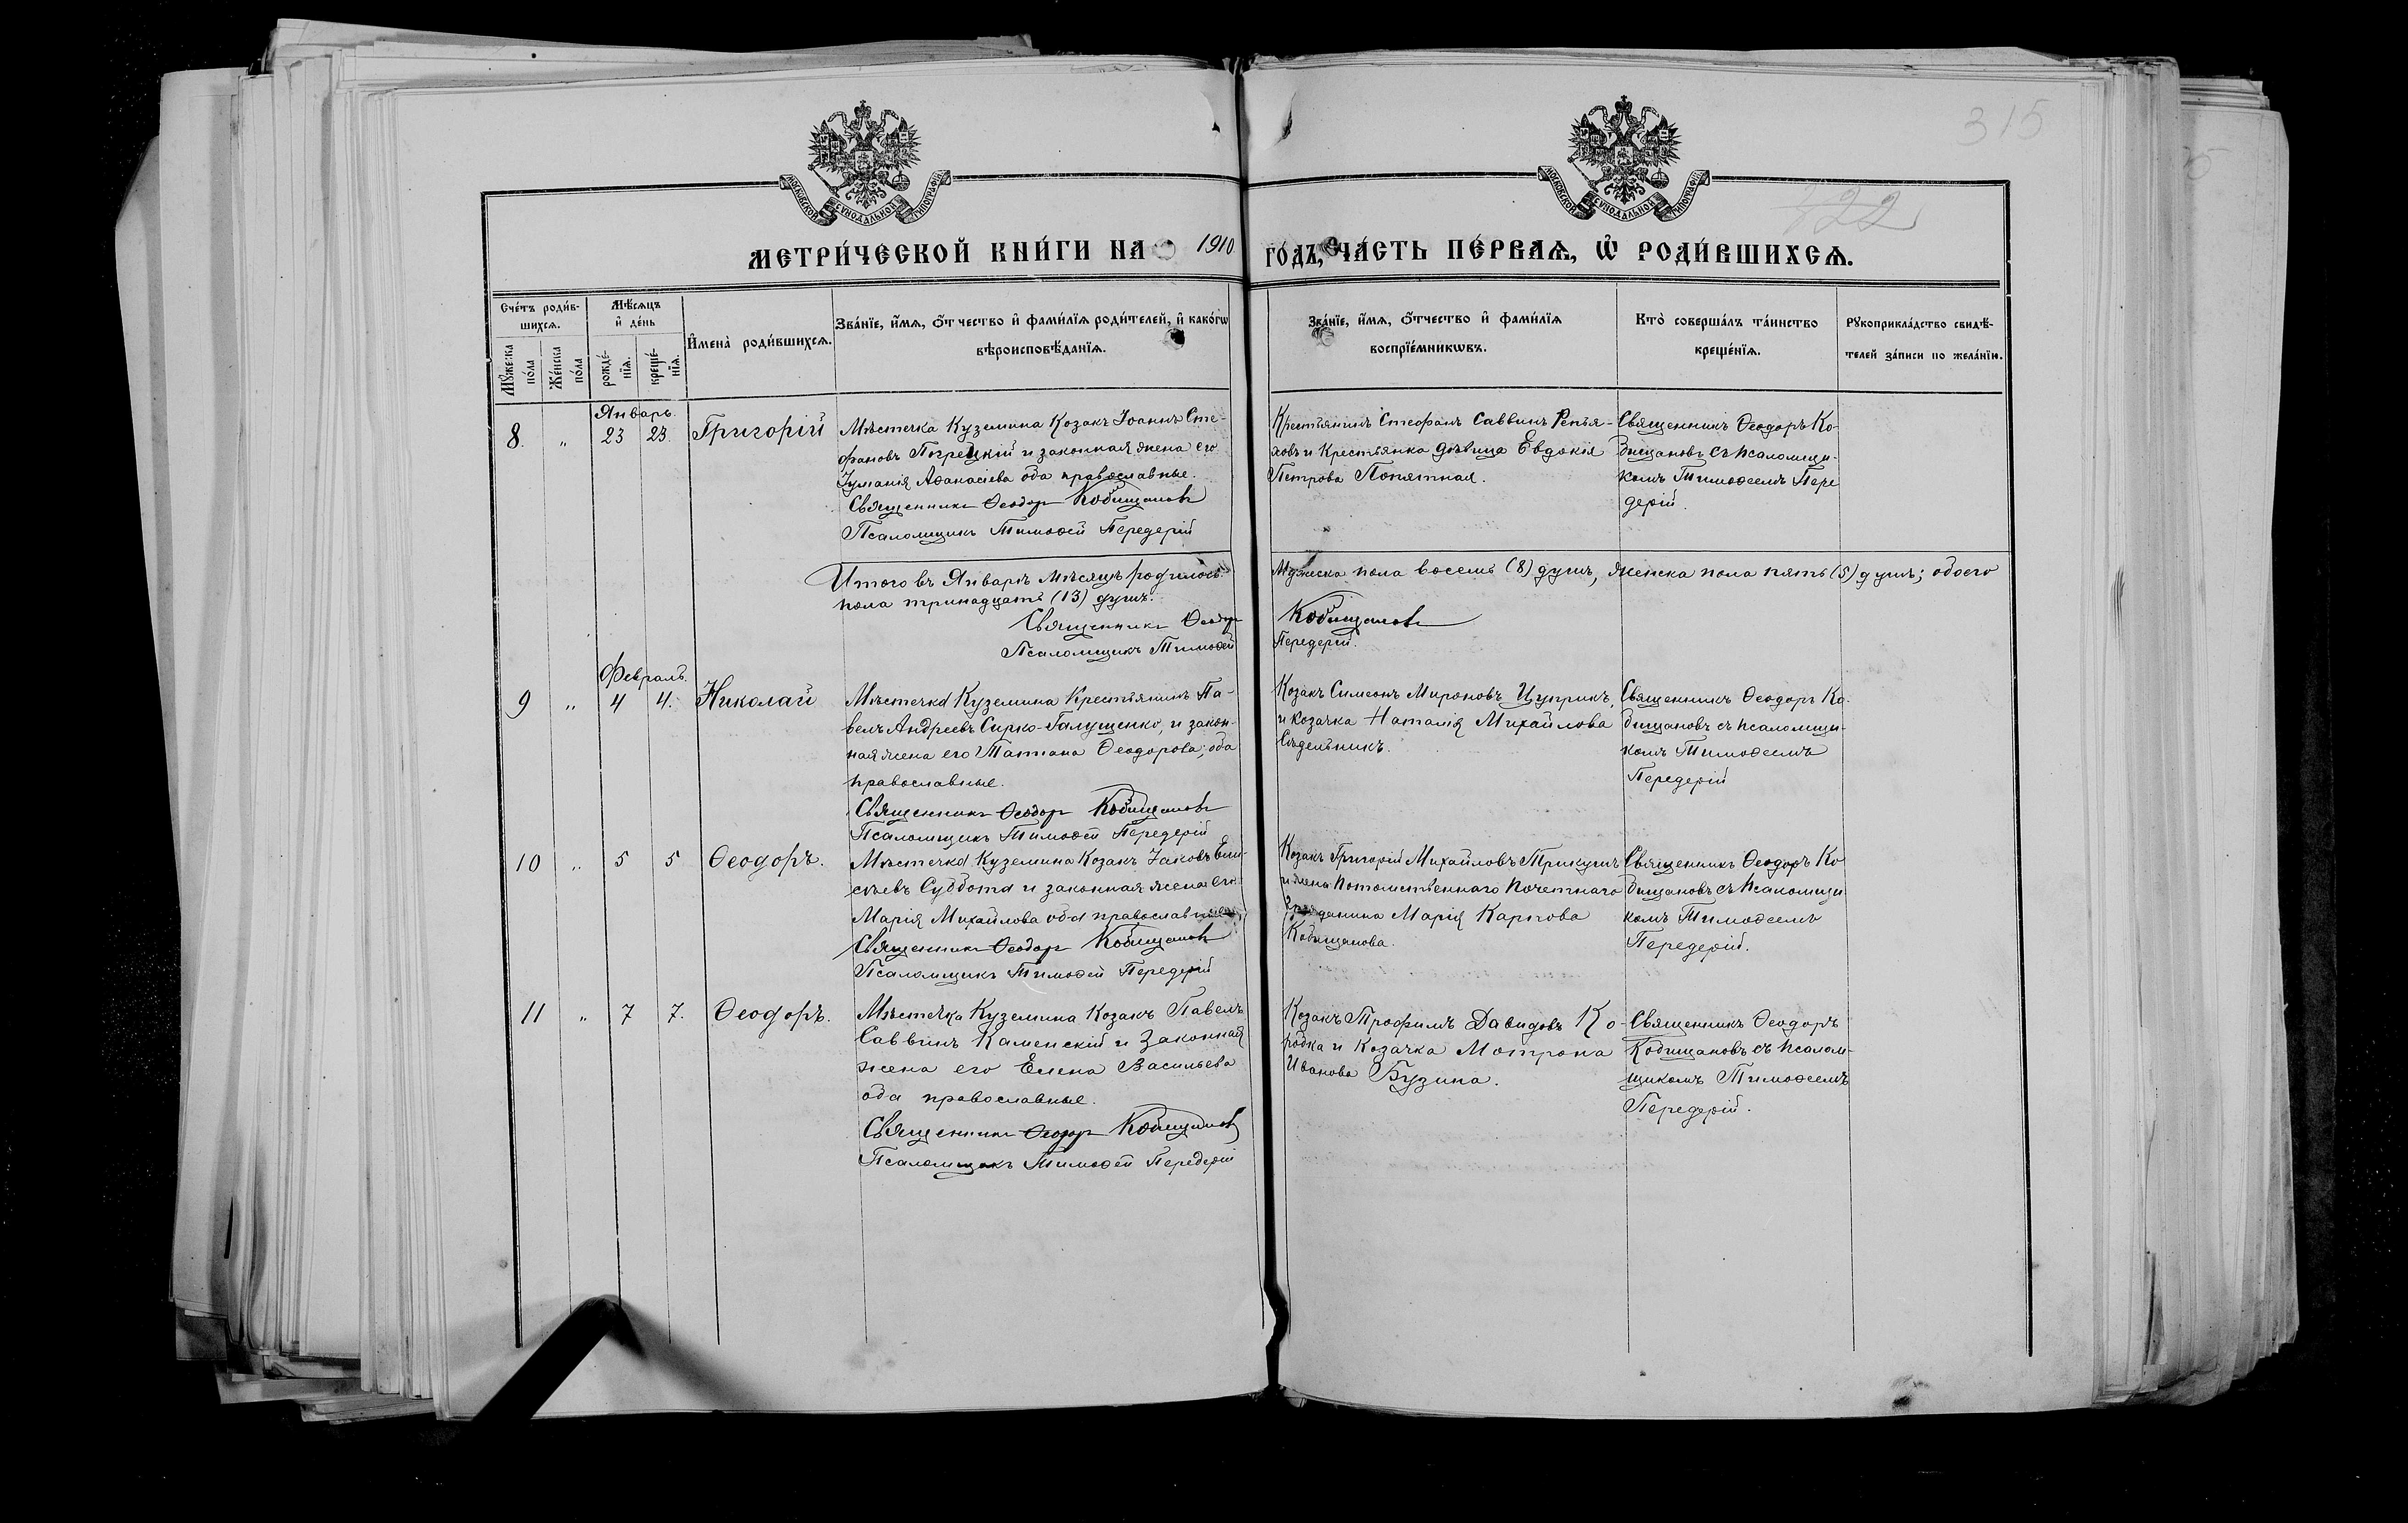 315
122
МОСКОВСКОЙ СѴНОДАЛЬНОЙ ТИПОГРАФІИ
МОСКОВСКОЙ СѴНОДАЛЬНОЙ ТИПОГРАФІИ
МЕТРИ́ЧЕСКОЙ КНИ́ГИ НА 1910 ГО́ДЪ, ЧА́СТЬ ПЕ́РВАѦ, Ѡ҆ РОДИ́ВШИХСѦ.
Сче́тъ роди́в-
шихсѧ.
Мꙋ́жеска по́ла
Же́нска по́ла
Мѣ́сѧцъ
и҆ де́нь
рожде́-
нїѧ.
креще́-
нїѧ.
И҆мена̀ роди́вшихсѧ.
Зва́нїе, и҆́мѧ, ѻ҆́тчество и҆ фами́лїѧ роди́телей, и҆ како́гѡ
вѣроисповѣ́данїѧ.
Зва́нїе, и҆́мѧ, ѻ҆́тчество и҆ фами́лїѧ
воспрїе́мникѡвъ.
Кто̀ соверша́лъ та́инство
креще́нїѧ.
Рꙋкоприкла́дство свидѣ́-
телей за́писи по жела́нїю.
Январь.
8. " 23 23. Григорій
Мѣстечка Куземина Козакъ Іоаннъ Сте-
фановъ Погрецкій и законная жена его
Іуманія Аѳанасіева оба православные.
Священникъ Ѳеодоръ Кобищановъ
Псаломщикъ Тимоѳей Передерій
Крестьянинъ Стефанъ Саввинъ Репья-
ховъ и Крестьянка дѣвица Евдокія
Петрова Попятная.
Священникъ Ѳеодоръ Ко-
бищановъ съ псаломщи-
комъ Тимоѳеемъ Пере
дерій.
Итого въ Январѣ мѣсяцѣ родилось: Мужеска пола восемь (8) душъ, женска пола пять (5) душъ; обоего
пола тринадцать (13) душъ.
Священникъ Ѳеодоръ Кобищановъ
Псаломщикъ Тимоѳей Передерій.
Февраль.
9 " 4 4. Николай
Мѣстечка Куземина Крестьянинъ Па-
велъ Андреевъ Сирко-Галущенко, и закон-
ная жена его Татіана Ѳеодорова; оба
православные.
Священникъ Ѳеодоръ Кобищановъ
Псаломщикъ Тимоѳей Передерій
Козакъ Симеонъ Мироновъ Цуприкъ,
и козачка Наталія Михайлова
Сѣдельникъ.
Священникъ Ѳеодоръ Ко-
бищановъ съ псаломщи-
комъ Тимоѳеемъ
Передерій
10 " 5 5 Ѳеодоръ.
Мѣстечка Куземина Козакъ Іаковъ Ели-
сѣевъ Суббота и законная жена его
Марія Михайлова оба православные.
Священникъ Ѳеодоръ Кобищановъ
Псаломщикъ Тимоѳей Передерій
Козакъ Григорій Михайловъ
и жена потомственнаго почетнаго
гражданина Марія Карпова
Кобищанова.
Священникъ Ѳеодоръ Ко
бищановъ съ псаломщи
комъ Тимоѳеемъ
Передерій.
11 " 7 7. Ѳеодоръ.
Мѣстечка Куземина Козакъ Павелъ
Саввинъ Каменскій и законная
жена его Елена Васильева
оба православные.
Священникъ Ѳеодоръ Кобищановъ
Псаломщикъ Тимоѳей Передерій
Козакъ Трофимъ Давидовъ Ко-
робка и Козачка Мотрона
Иванова Бузина.
Священникъ Ѳеодоръ
Кобищановъ съ псалом-
щикомъ Тимоѳеемъ
Передерій.